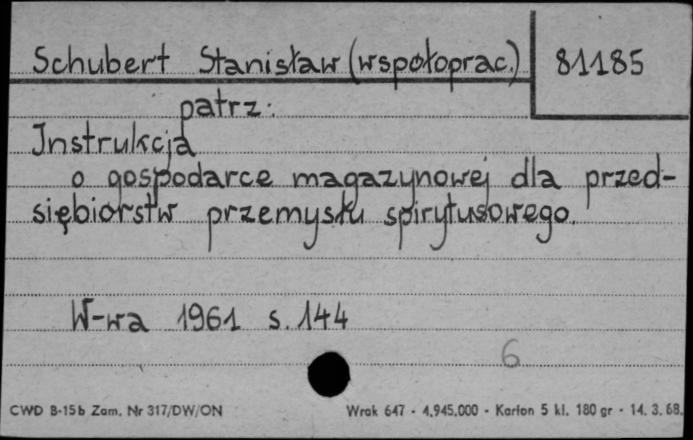 Schubert Stanisław (współoprac.) 81185
patrz:
Instrukcja
o gospodarce magazynowej dla przed-
siębiorstw przemysłu spirytusowego.
W-wa 1961 s. 144
6
CWD B-15b Zam. Nr 317/DW/ON Wrak 647 - 4.945.000 - Karton 5 kl. 180 gr - 14. 3. 68.